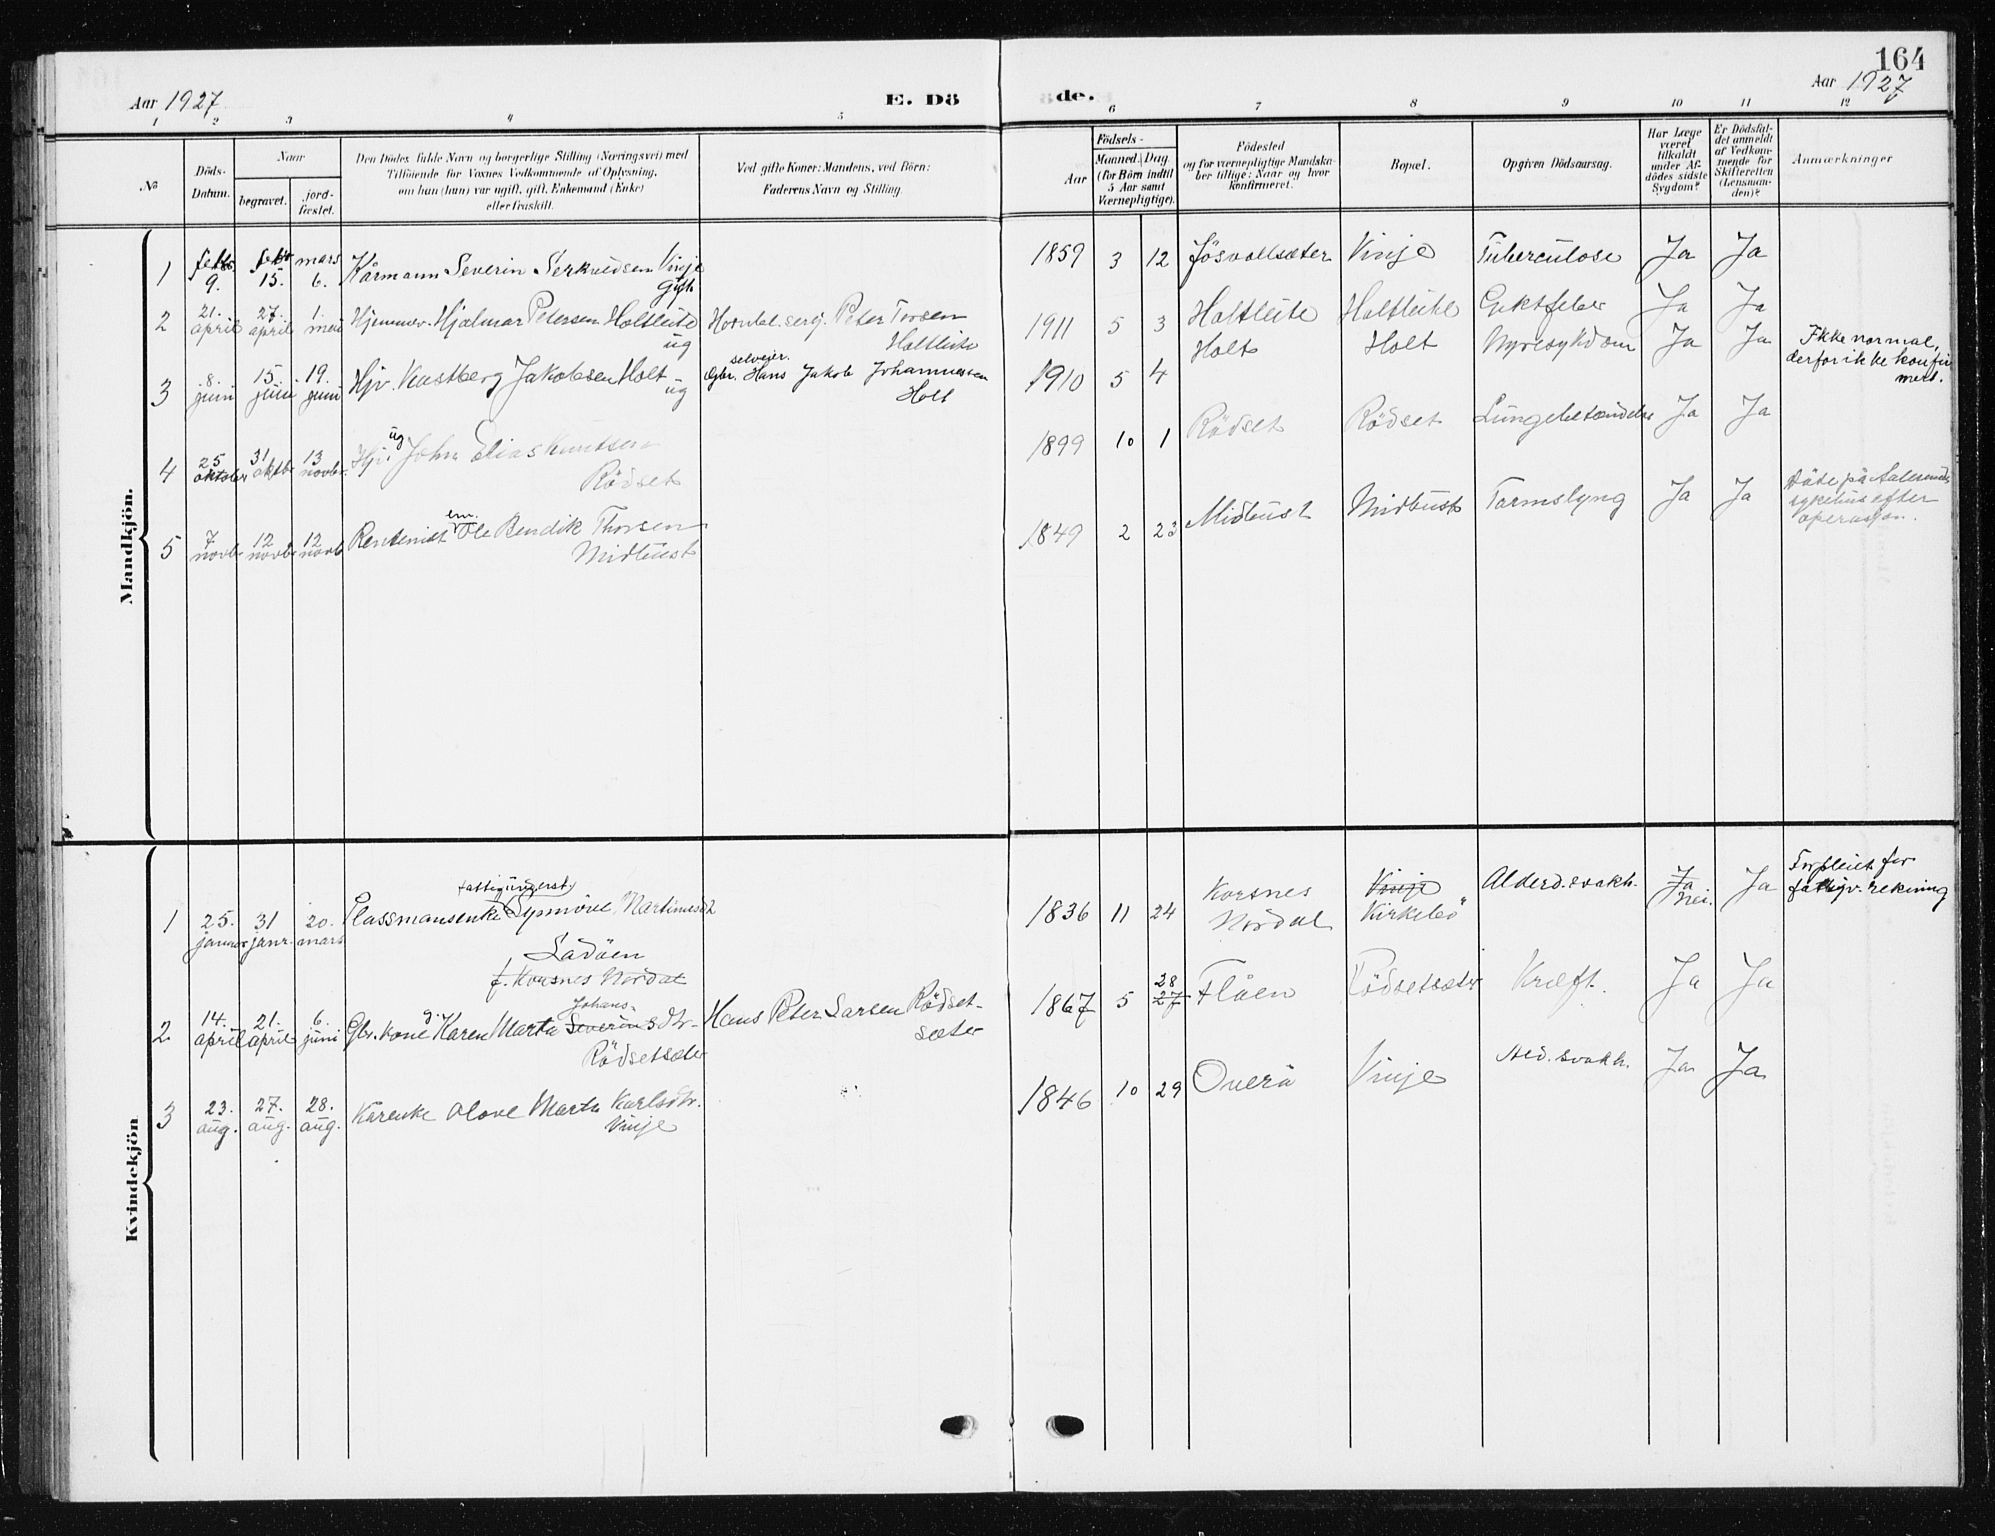 164
Aar 1927
E. Dö
de.
Aar 1927
1 2 3 4 5 6 7 8 9 10 11 12
No
Döds-
Datum.
Naar
begravet.
jord-
fæstet.
Den Dödes fulde Navn og borgerlige Stilling (Næringsvei) med
Tilföiende for Voxnes Vedkommende af Oplysning,
om han (hun) var ugift, gift, Enkemand (Enke)
eller fraskilt.
Ved gifte Koner: Mandens, ved Börn:
Faderens Navn og Stilling.
Födsels-
Aar
Maaned. Dag
(for Börn indtil
5 Aar samt
Værnepligtige).
Födested
og for værnepligtige Mandska-
ber tillige: Naar og hvor
konfirmeret.
Bopæl.
Opgiven Dödsaarsag.
Har Læge
været
tilkaldt
under Af-
dödes sidste
Sygdom?
Er Dödsfal-
det anmeldt
af Vedkom-
mende for
Skifteretten
(Lensman-
den)?
Anmærkninger
Mandkjön.
1 febr 9. febr 15. mars 6. Kårmann Severin Serkvedsen Vinje
gift
1859 3 12 Jösvollsæter Vinje Tuberculose Ja Ja
2 21. april 27. april 1. mai Hjemmev. Hjalmar Petersen Holtleite
ug
Peter Torsen
Holtleite
1911 5 3 Holtleite Holtleite Giktfeber Ja Ja
3 8. juni 15. juni 19. juni Hjv. Kastberg Jakobsen Holt
ug
selveier.
Gbr. Hans Jakob Johannessen
Holt
1910 5 4 Holt Holt Nyresykdom Ja Ja
Ikke normal,
derfor ikke konfir
mert.
4 25 oktober 31 oktbr 13 novbr. Hjv. ug John Elias Knutsen
Rödset
1899 10 1 Rödset Rödset Lungebetændelse Ja Ja
5 7 novbr 12 novbr 12 novb Rentenist em. Ole Bendik Thorsen
Midtbust
1849 2 23 Midtbust Midtbust Tarmslyng Ja Ja
Döde på Aalesunds
sykehus efter
operasjon.
Kvindekjön
1 25. januar 31 janr. 20. mars fattigunderst.
Plassmansenke Synnöve Martinusdt
Ladöen
f. Korsnes Nordal
1836 11 24 Korsnes
Nordal
Vinje
Kirkebö
Alderd. svakh. Ja
nei.
Ja
Forpleiet for
fattigv. rekning
2 14. april 21. april 6. juni Gbr. kone g. Karen Marta Severins Johans-dtr.
Rödsetsæter
Hans Peter Larsen Rödset-
sæter
1867 5 28 27 Flåen Rödsetsæter Kræft. Ja Ja
3 23. aug. 27. aug. 28. aug. Kårenke Olave Marta Karlsdtr.
Vinje
1846 10 29 Overå Vinje Ald. svakh. Ja Ja